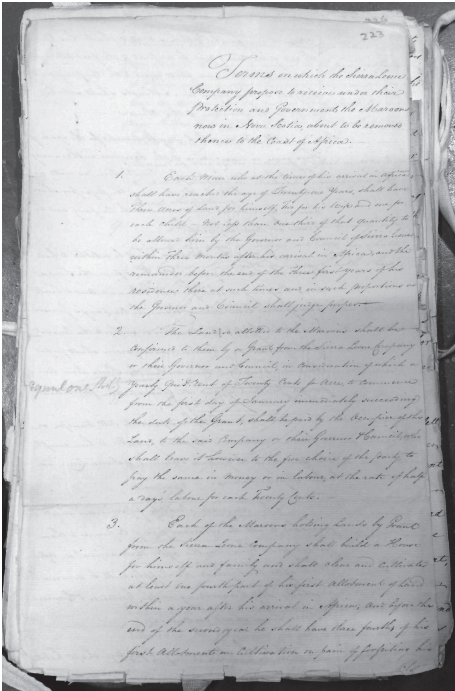 226
223
Terms on which the Sierra Leone
Company propose to receive under their
Protection and Government the Maroons
now in Nova Scotia about to be removed
thence to the Coast of Africa.
1. Each Man who at the time of his arrival in Africa
shall have reached the age of Twenty one Years, shall have
Three Acres of Land for himself, for his Wife and one for
each Child - not less than one third of that quantity to
be allotted him by the Governor and Council of Sierra Leone
within Three Months after his arrival in Africa, and the
remainder before the end of the Three first years of his
residence there at such times and in such proportions as
the Governor and Council shall judge proper.
2. The Land so allotted to the Maroons shall be
confirmed to them by a Grant from the Sierra Leone Company
or their Governor and Council, in consideration of which a
yearly Quit Rent of Twenty Cents pr Acre, to commence
from the first day of January immediately succeeding
the date of the Grant, shall be paid by the Occupier of the
Land, to the said Company or their Governor & Council, who
shall leave it however to the free choice of the party to
pay the same in money or in labour at the rate of half
a days labour for each Twenty Cents.
3. Each of the Maroons holding Lands by Grant
from the Sierra Leone Company shall build a House
for himself and family and shall clear and cultivate
at least one fourth part of his first Allotment of Land
within a year after his arrival in Africa, and before the
end of the second year he shall have three fourths of his
first Allotment in Cultivation on pain of forfeiting his